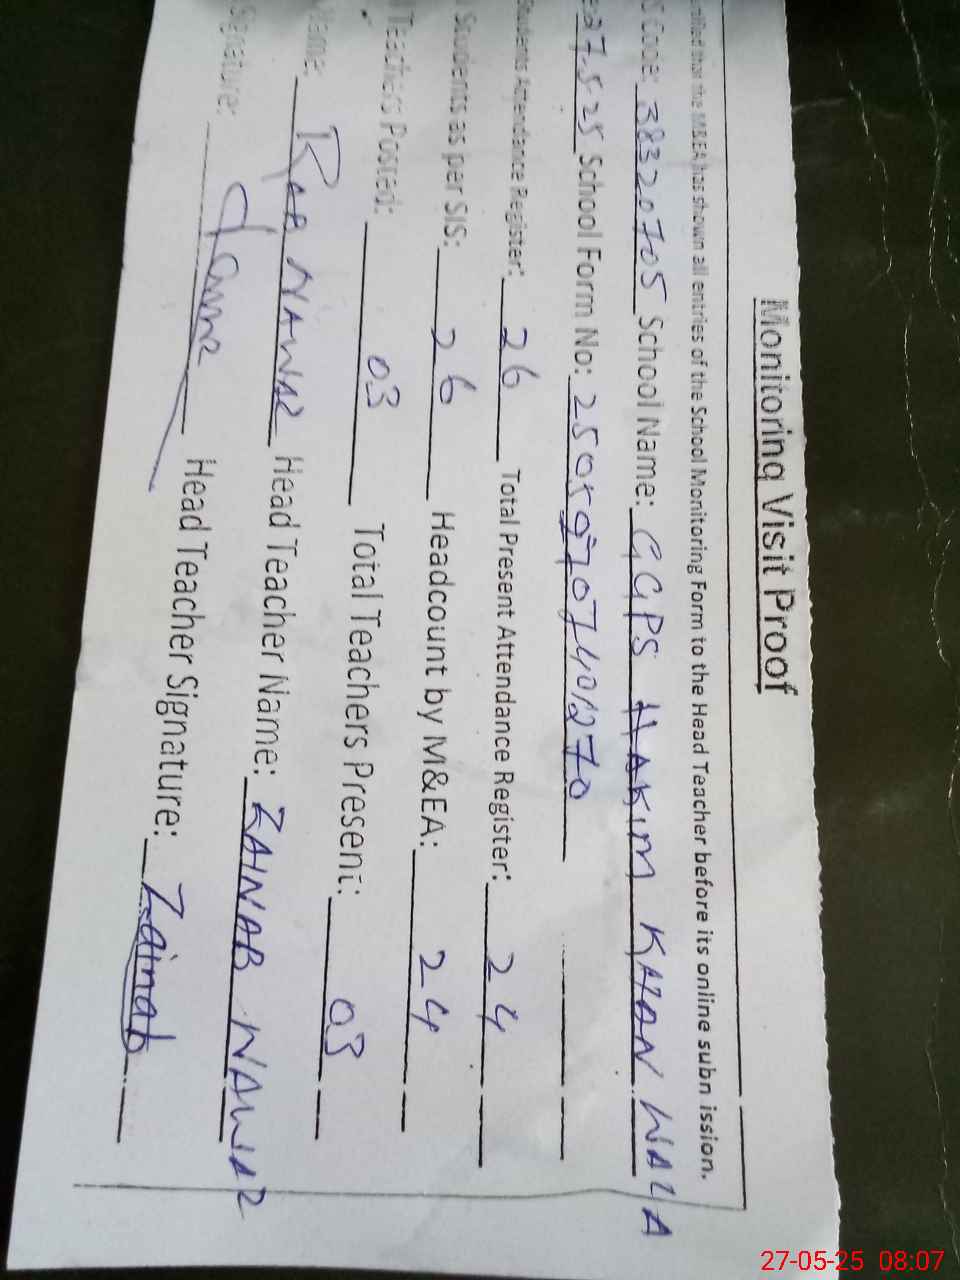 Monitoring Visit Proof
that the M&EA has shown all entries of the School Monitoring Form to the Head Teacher before its online subn ission.
Code: 38320705 School Name: GGPS HAKIM KHAN WALA
27.5.25 School Form No:
Students Attendance Register: 26 Total Present Attendance Register: 24
Students as per SIS: 26 Headcount by M&EA: 24
Teachers Posted: 03 Total Teachers Present: 03
Name: RAB NAWAZ Head Teacher Name: ZAINAB NAWAZ
Signature: Head Teacher Signature: Zainab
27-05-25 08:07